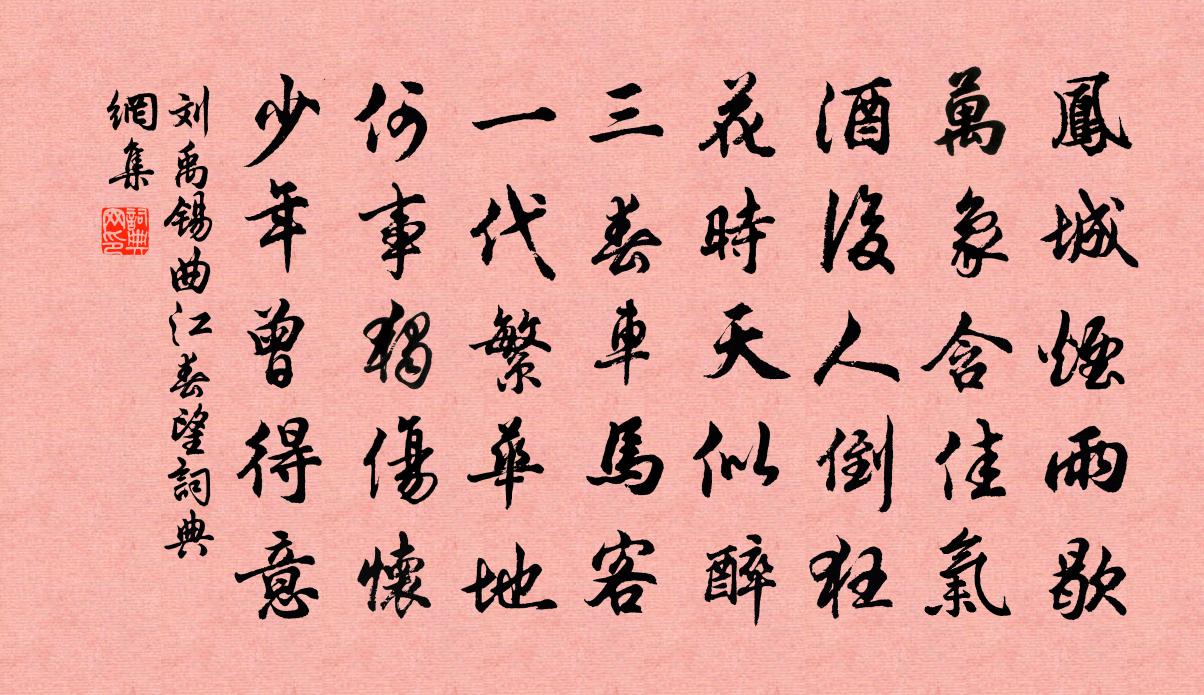 鳳城煙雨歇
萬象含佳氣
酒後人倒狂
花時天似醉
三春車馬客
一代繁華地
何事獨傷懷
少年曾得意
刘禹锡曲江春望詞典
網集
詞典
网印